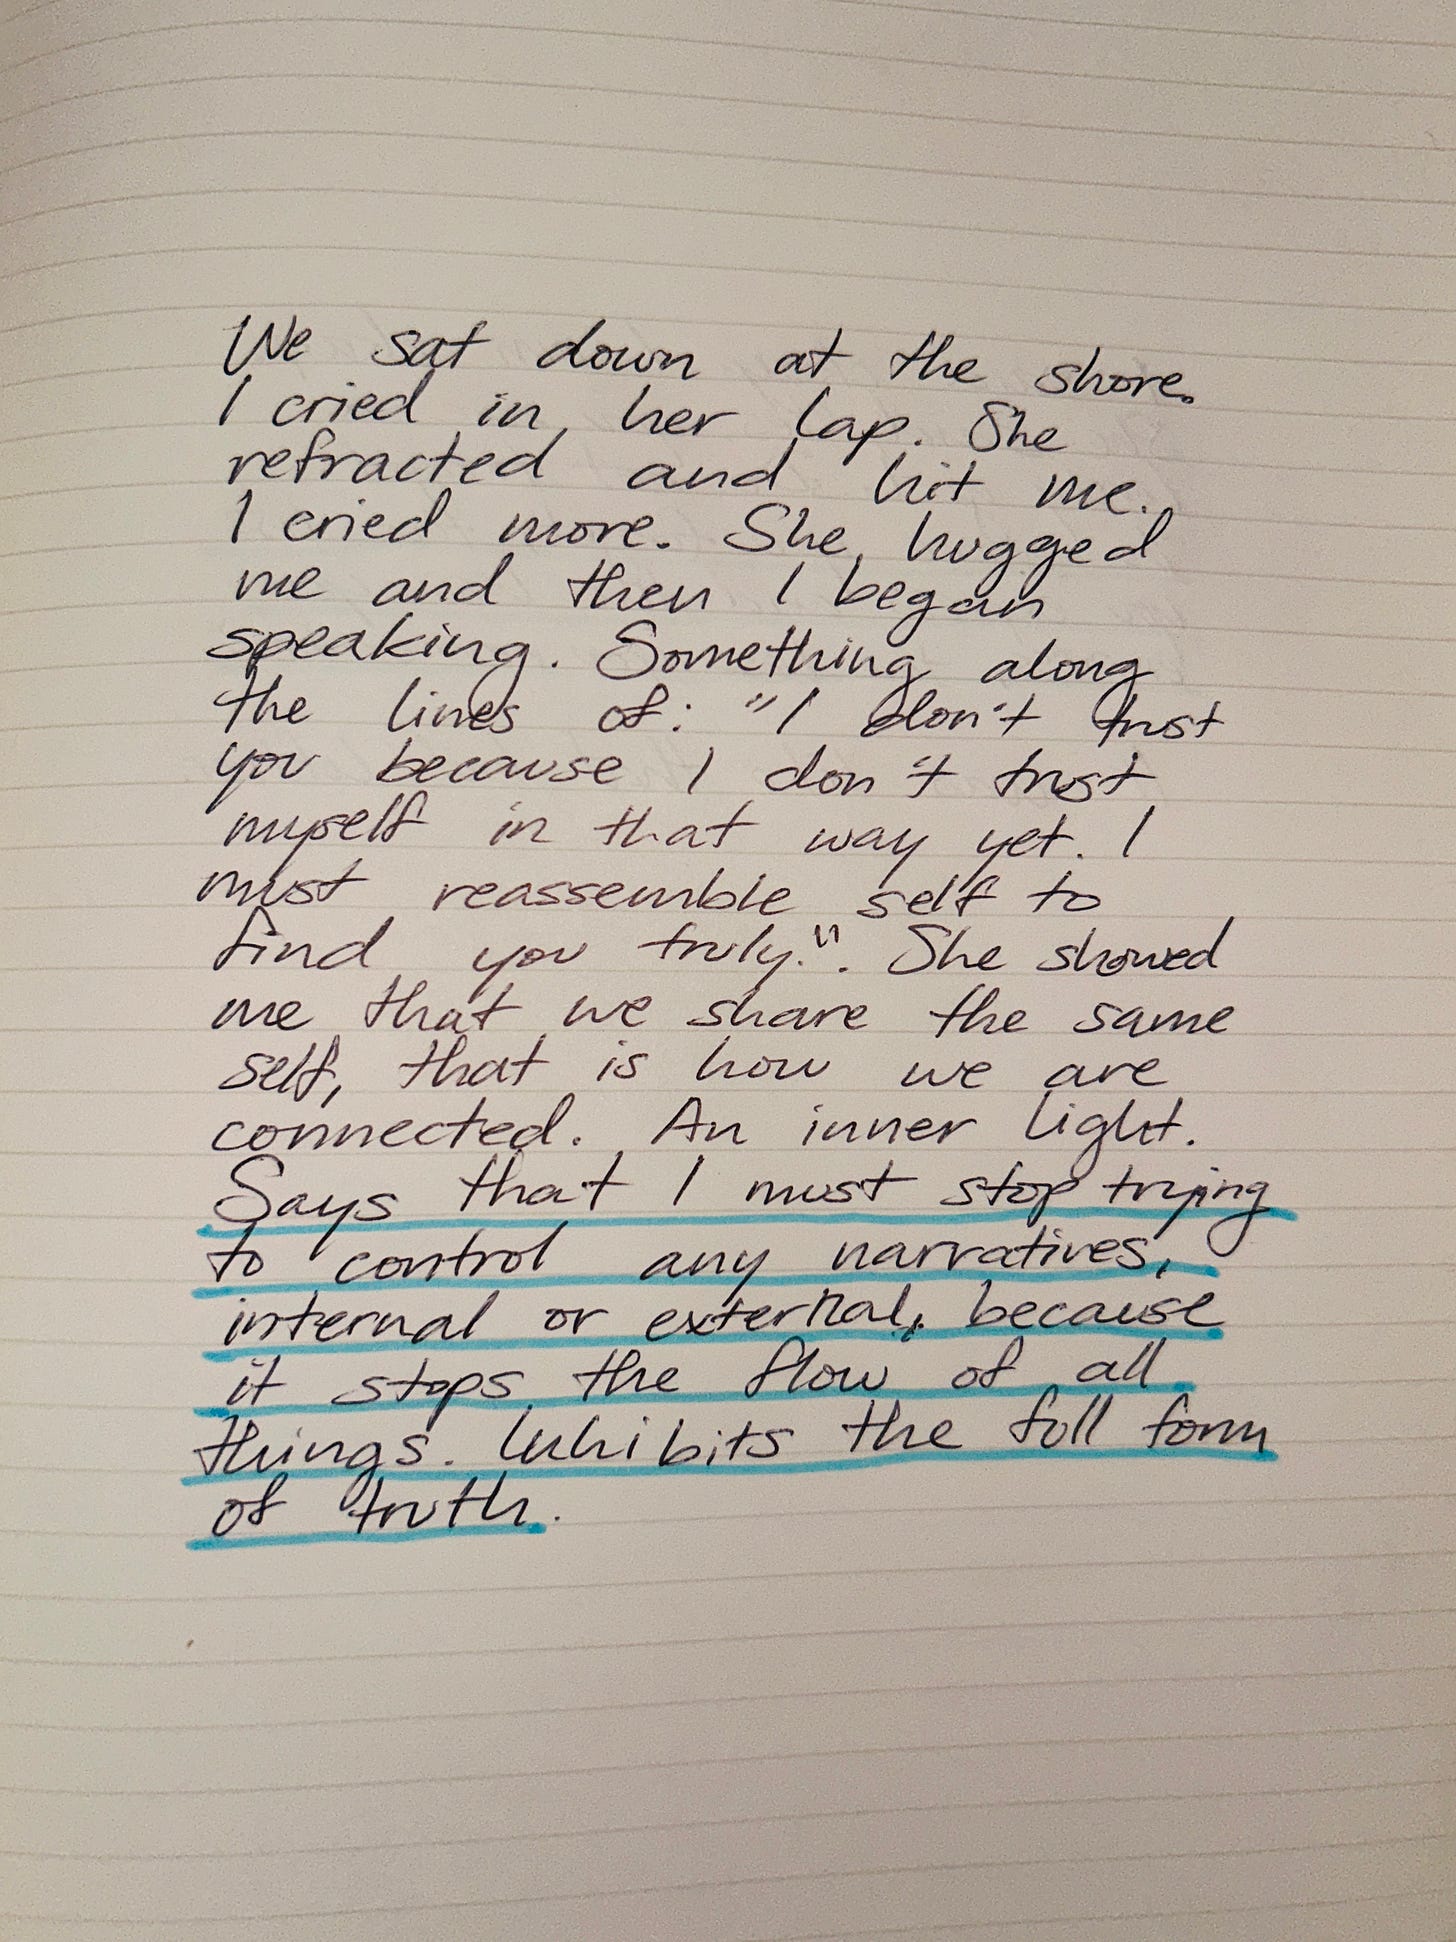 We sat down at the shore.
I cried in her lap. She
refracted and hit me.
I cried more. She hugged
me and then I began
speaking. Something along
the lines of: "I don't trust
you because I don't trust
myself in that way yet. I
must reassemble self to
find you truly.". She showed
me that we share the same
self, that is how we are
connected. An inner light.
Says that I must stop trying
to control any narratives,
internal or external, because
it stops the flow of all
things. Inhibits the full form
of truth.